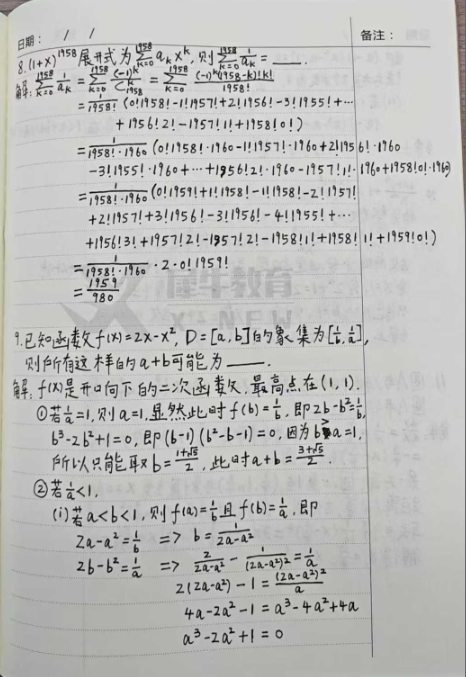 日期: / /
备注:
8.(1+x)^1958 展开式为 ∑_{k=0}^{1958} a_k x^k, 则 ∑_{k=0}^{1958} 1/a_k = ____.
解: ∑_{k=0}^{1958} 1/a_k = ∑_{k=0}^{1958} (-1)^k/C_{1958}^k = ∑_{k=0}^{1958} (-1)^k(1958-k)!k!/1958!
= 1/1958! (0!1958!-1!1957!+2!1956!-3!1955!+⋯
+1956!2!-1957!1!+1958!0!)
= 1/(1958!·1960) (0!1958!·1960-1!1957!·1960+2!1956!·1960
-3!1955!·1960+⋯+1956!2!·1960-1957!1!·1960+1958!0!·1960)
= 1/(1958!·1960) (0!1959!+1!1958!-1!1958!-2!1957!
+2!1957!+3!1956!-3!1956!-4!1955!+⋯
+1956!3!+1957!2!-1957!2!-1958!1!+1958!1!+1959!0!)
= 1/(1958!·1960)·2·0!1959!
= 1959/980
犀牛教育
9.已知函数f(x)=2x-x², D=[a,b]的象集为[1/b,1/a],
则所有这样的a+b可能为____.
解: f(x)是开口向下的二次函数, 最高点在(1,1).
①若1/a=1, 则a=1, 显然此时f(b)=1/b, 即2b-b²=1/b,
b³-2b²+1=0, 即(b-1)(b²-b-1)=0, 因为b>a=1,
所以只能取b=(1+√5)/2, 此时a+b=(3+√5)/2.
②若1/a<1.
(i)若a<b<1, 则f(a)=1/b且f(b)=1/a, 即
2a-a²=1/b => b=1/(2a-a²)
2b-b²=1/a => 2/(2a-a²)-1/(2a-a²)²=1/a
2(2a-a²)-1=(2a-a²)²/a
4a-2a²-1=a³-4a²+4a
a³-2a²+1=0